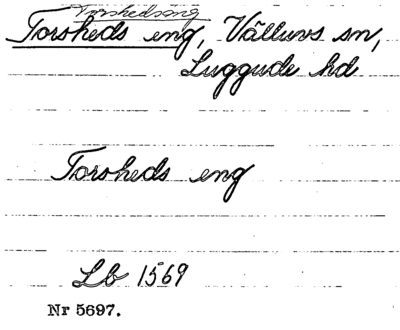 Torshedsäng
Torsheds eng, Välluvs sn,
Luggude hd
Torsheds eng
Lb 1569
Nr 5697.